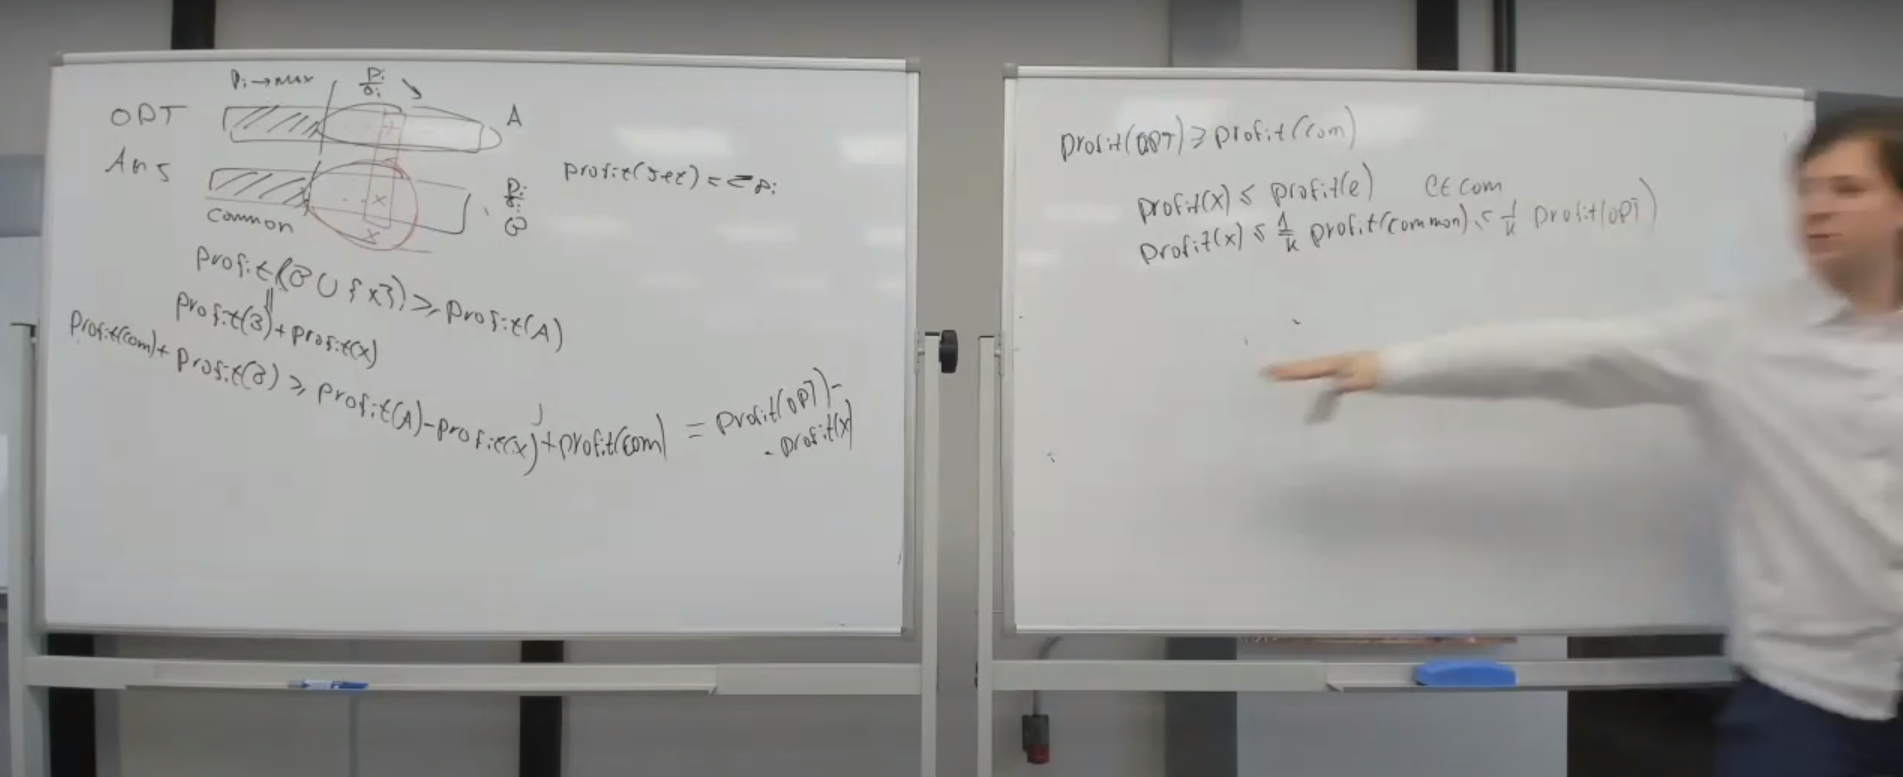 Pi → max
Pi/δi ↘
OPT
A
Ans
Pi/δi
B
common
profit(set) = Σ Pi
x
x
profit(B ∪ {x}) ≥ profit(A)
||
profit(B) + profit(x)
profit(com) + profit(B) ≥ profit(A) - profit(x) + profit(com) = profit(OPT) -
- profit(x)
profit(OPT) ≥ profit(com)
profit(x) ≤ profit(e) e ∈ com
profit(x) ≤ 1/k profit(common) ≤ 1/k profit(OPT)